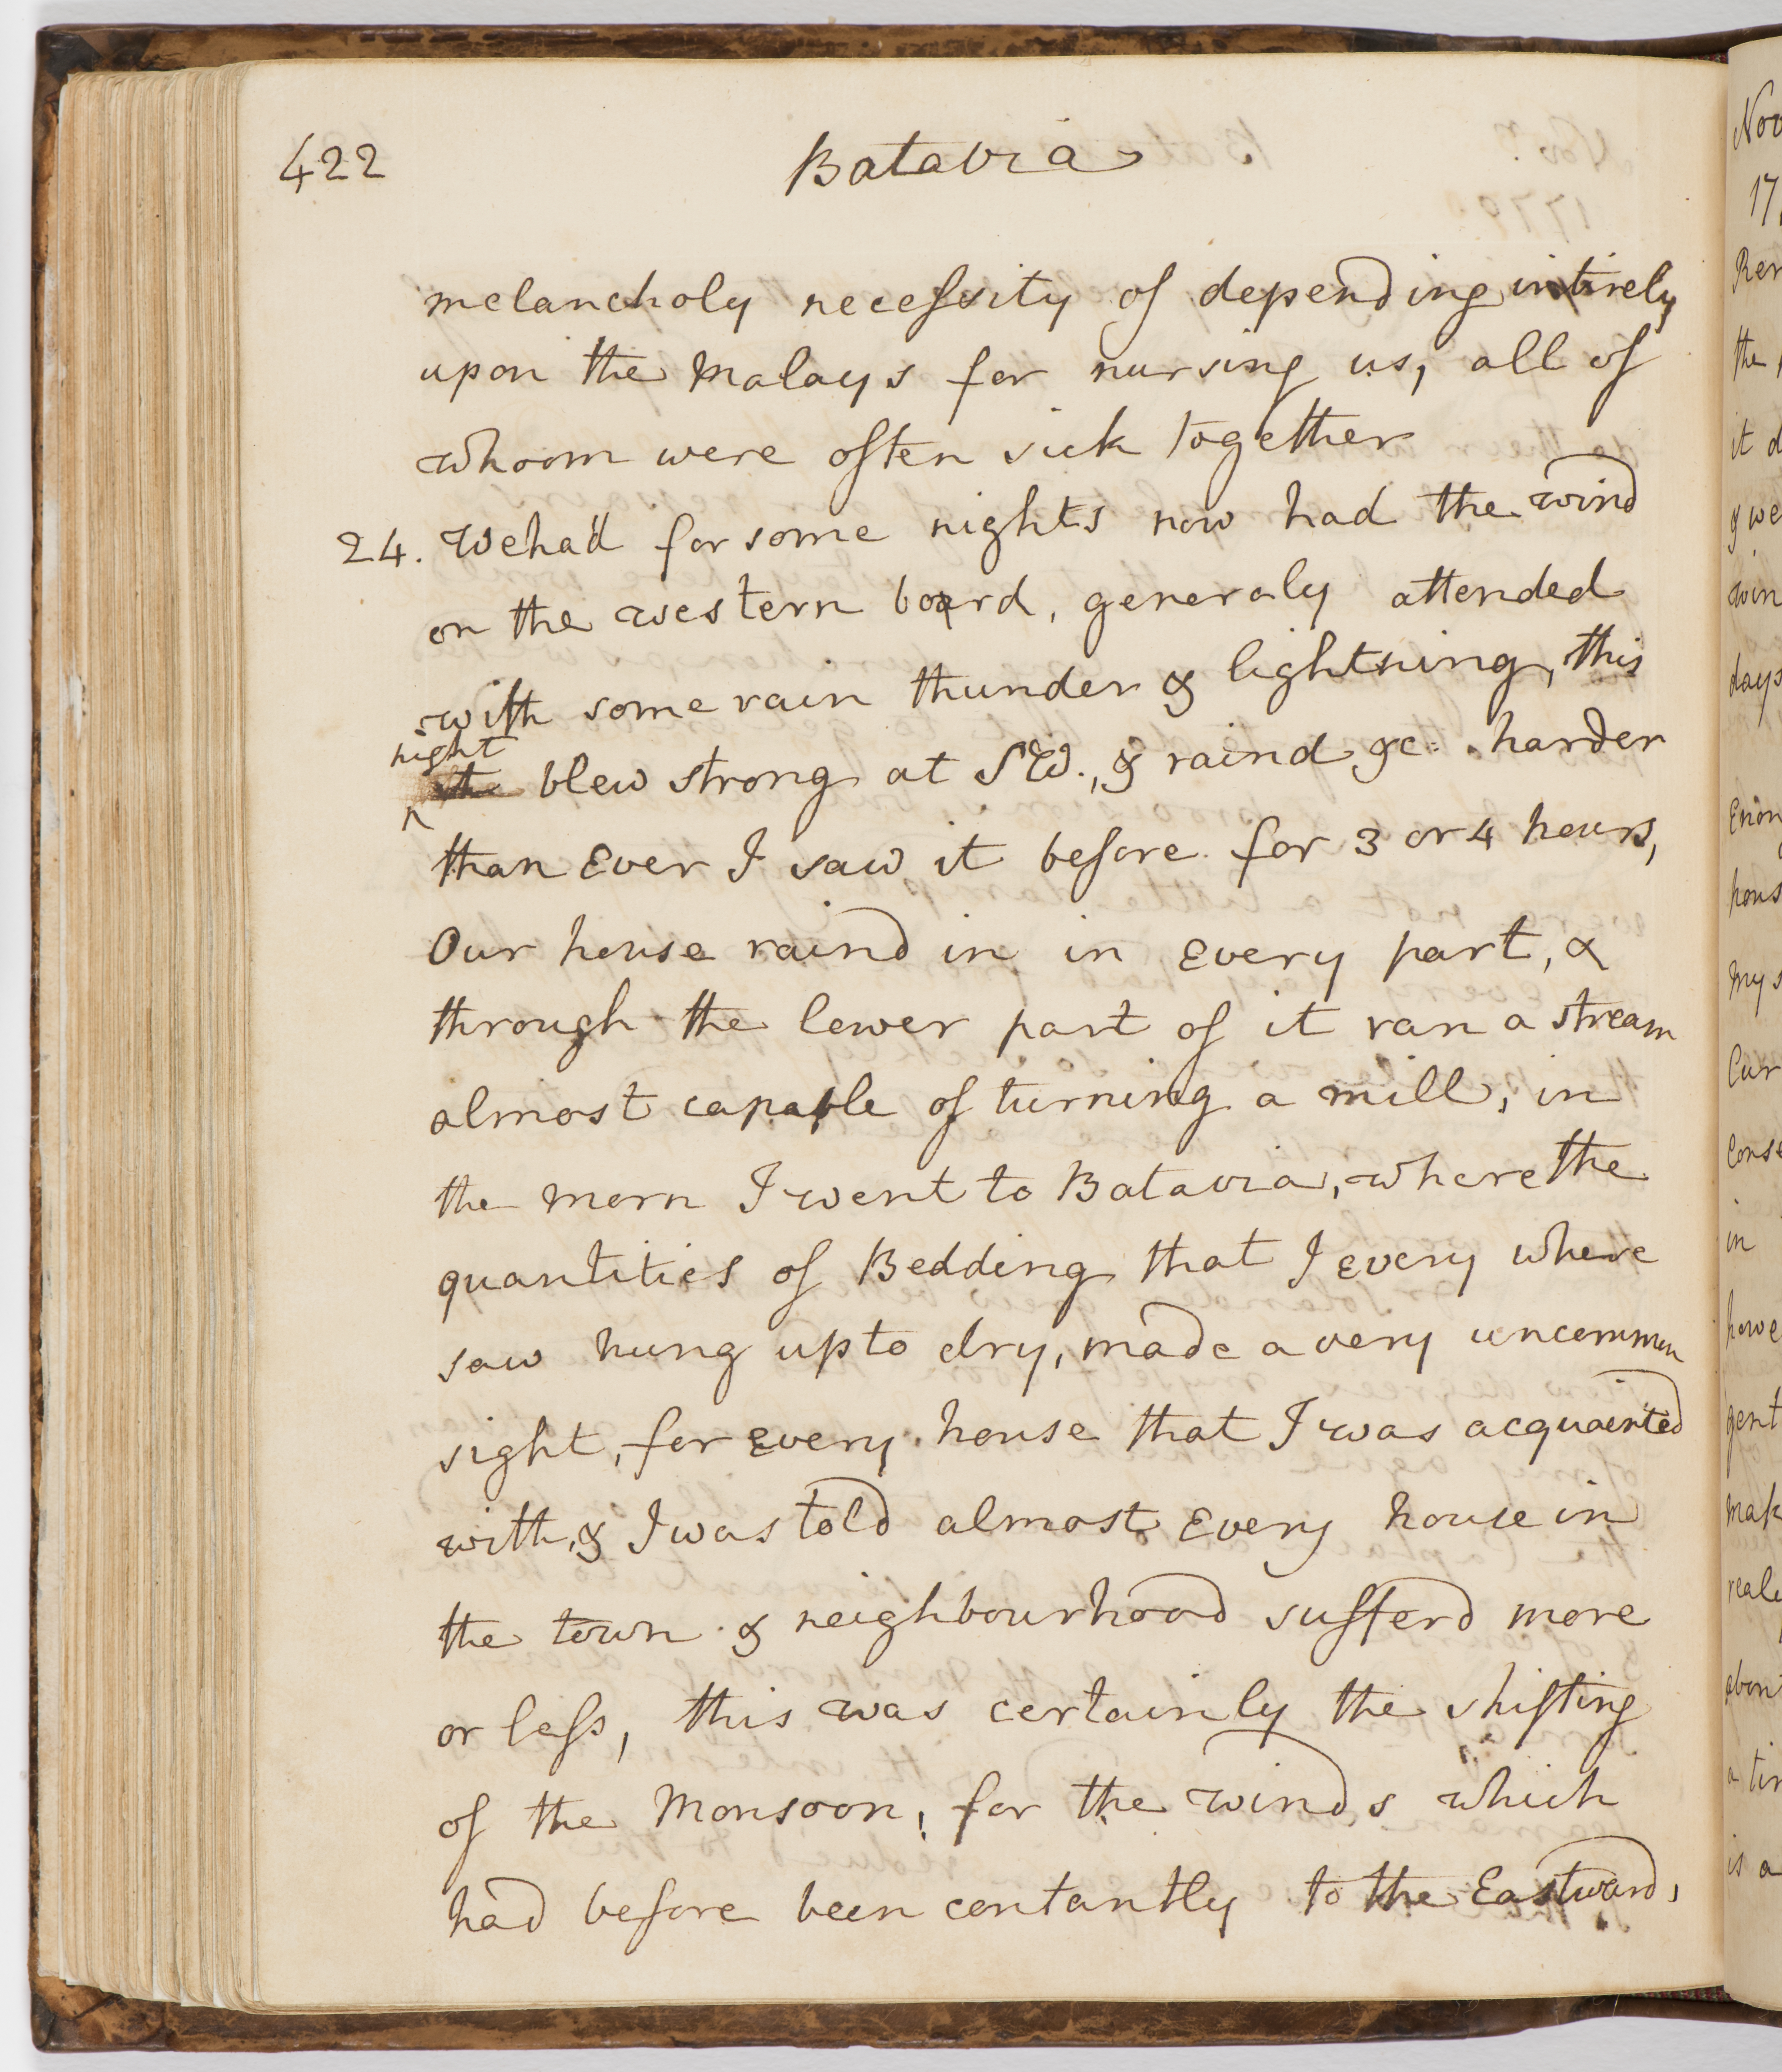 422
Batavia
melancholy necessity of depending intirely
upon the Malays for nursing us, all of
whoom were often sick together
24. We had for some nights now had the wind
on the western board, generaly attended
with some rain thunder & lightning, this
night
blew strong at SW., & raind &c. harder
than Ever I saw it before for 3 or 4 hours,
Our house raind in in Every part, &
through the lower part of it ran a stream
almost capable of turning a mill, in
the morn I went to Batavia, where the
quantities of Bedding that I every where
saw hung up to dry, made a very uncommon
sight, for Every house that I was acquainted
with, & I was told almost Every house in
the town & neighbourhood sufferd more
or less, this was certainly the shifting
of the Monsoon, for the winds which
had before been contantly to the Eastward,
Nov
17
the
it d
& we
win
days
hous
My s
in
howe
gent
is a